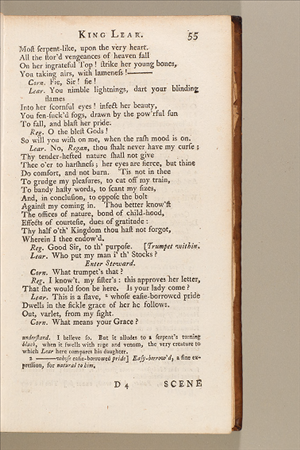 KING LEAR. 55
Most serpent-like, upon the very heart.
All the stor'd vengeances of heaven fall
On her ingrateful Top! strike her young bones,
You taking airs, with lameness!———
Corn. Fie, Sir! fie!
Lear. You nimble lightnings, dart your blinding
flames
Into her scornful eyes! infect her beauty,
You fen-suck'd fogs, drawn by the pow'rful sun
To fall, and blast her pride.
Reg. O the blest Gods!
So will you wish on me, when the rash mood is on.
Lear. No, Regan, thou shalt never have my curse;
Thy tender-hefted nature shall not give
Thee o'er to harshness; her eyes are fierce, but thine
Do comfort, and not burn. 'Tis not in thee
To grudge my pleasures, to cut off my train,
To bandy hasty words, to scant my sizes,
And, in conclusion, to oppose the bolt
Against my coming in. Thou better know'st
The offices of nature, bond of child-hood,
Effects of courtesie, dues of gratitude:
Thy half o'th' Kingdom thou hast not forgot,
Wherein I thee endow'd.
Reg. Good Sir, to th' purpose. [Trumpet within.
Lear. Who put my man i' th' Stocks?
Enter Steward.
Corn. What trumpet's that?
Reg. I know't, my sister's: this approves her letter,
That she would soon be here. Is your lady come?
Lear. This is a slave, 2 whose easie-borrowed pride
Dwells in the sickle grace of her he follows.
Out, varlet, from my sight.
Corn. What means your Grace?
understand. I believe so. But it alludes to a serpent's turning
black, when it swells with rage and venom, the very creature to
which Lear here compares his daughter.
2 ———whose easie-borrowed pride] Easy-borrow'd, a fine ex-
pression, for natural to him.
D 4 SCENE